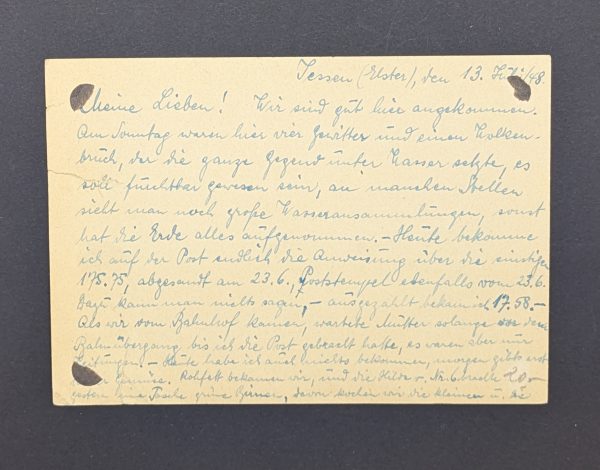 Jessen (Elster), den 13. Juli/48.
Meine Lieben! Wir sind gut hier angekommen.
Am Sonntag waren hier vier Gewitter und einen Wolken-
bruch, der die ganze Gegend unter Wasser setzte, es
soll furchtbar gewesen sein, an manchen Stellen
sieht man noch große Wasseransammlungen, sonst
hat die Erde alles aufgenommen. – Heute bekomme
ich auf der Post endlich die Anweisung über die einstigen
175.75, abgesandt am 23.6., Poststempel ebenfalls vom 23.6.
Dazu kann man nichts sagen, – ausgezahlt bekam ich 17.58.–
Als wir vom Bahnhof kamen, wartete Mutter solange vor dem
Bahnübergang bis ich die Post gebracht hatte, es waren aber nur
Zeitungen. – Heute habe ich auch nichts bekommen, morgen gibts erst
Gemüse. Rohfett bekamen wir, und die Hilde v. Nr. 6 brachte 20.–
gestern eine Tasche grüne Birnen, davon kochen wir die kleinen u. die